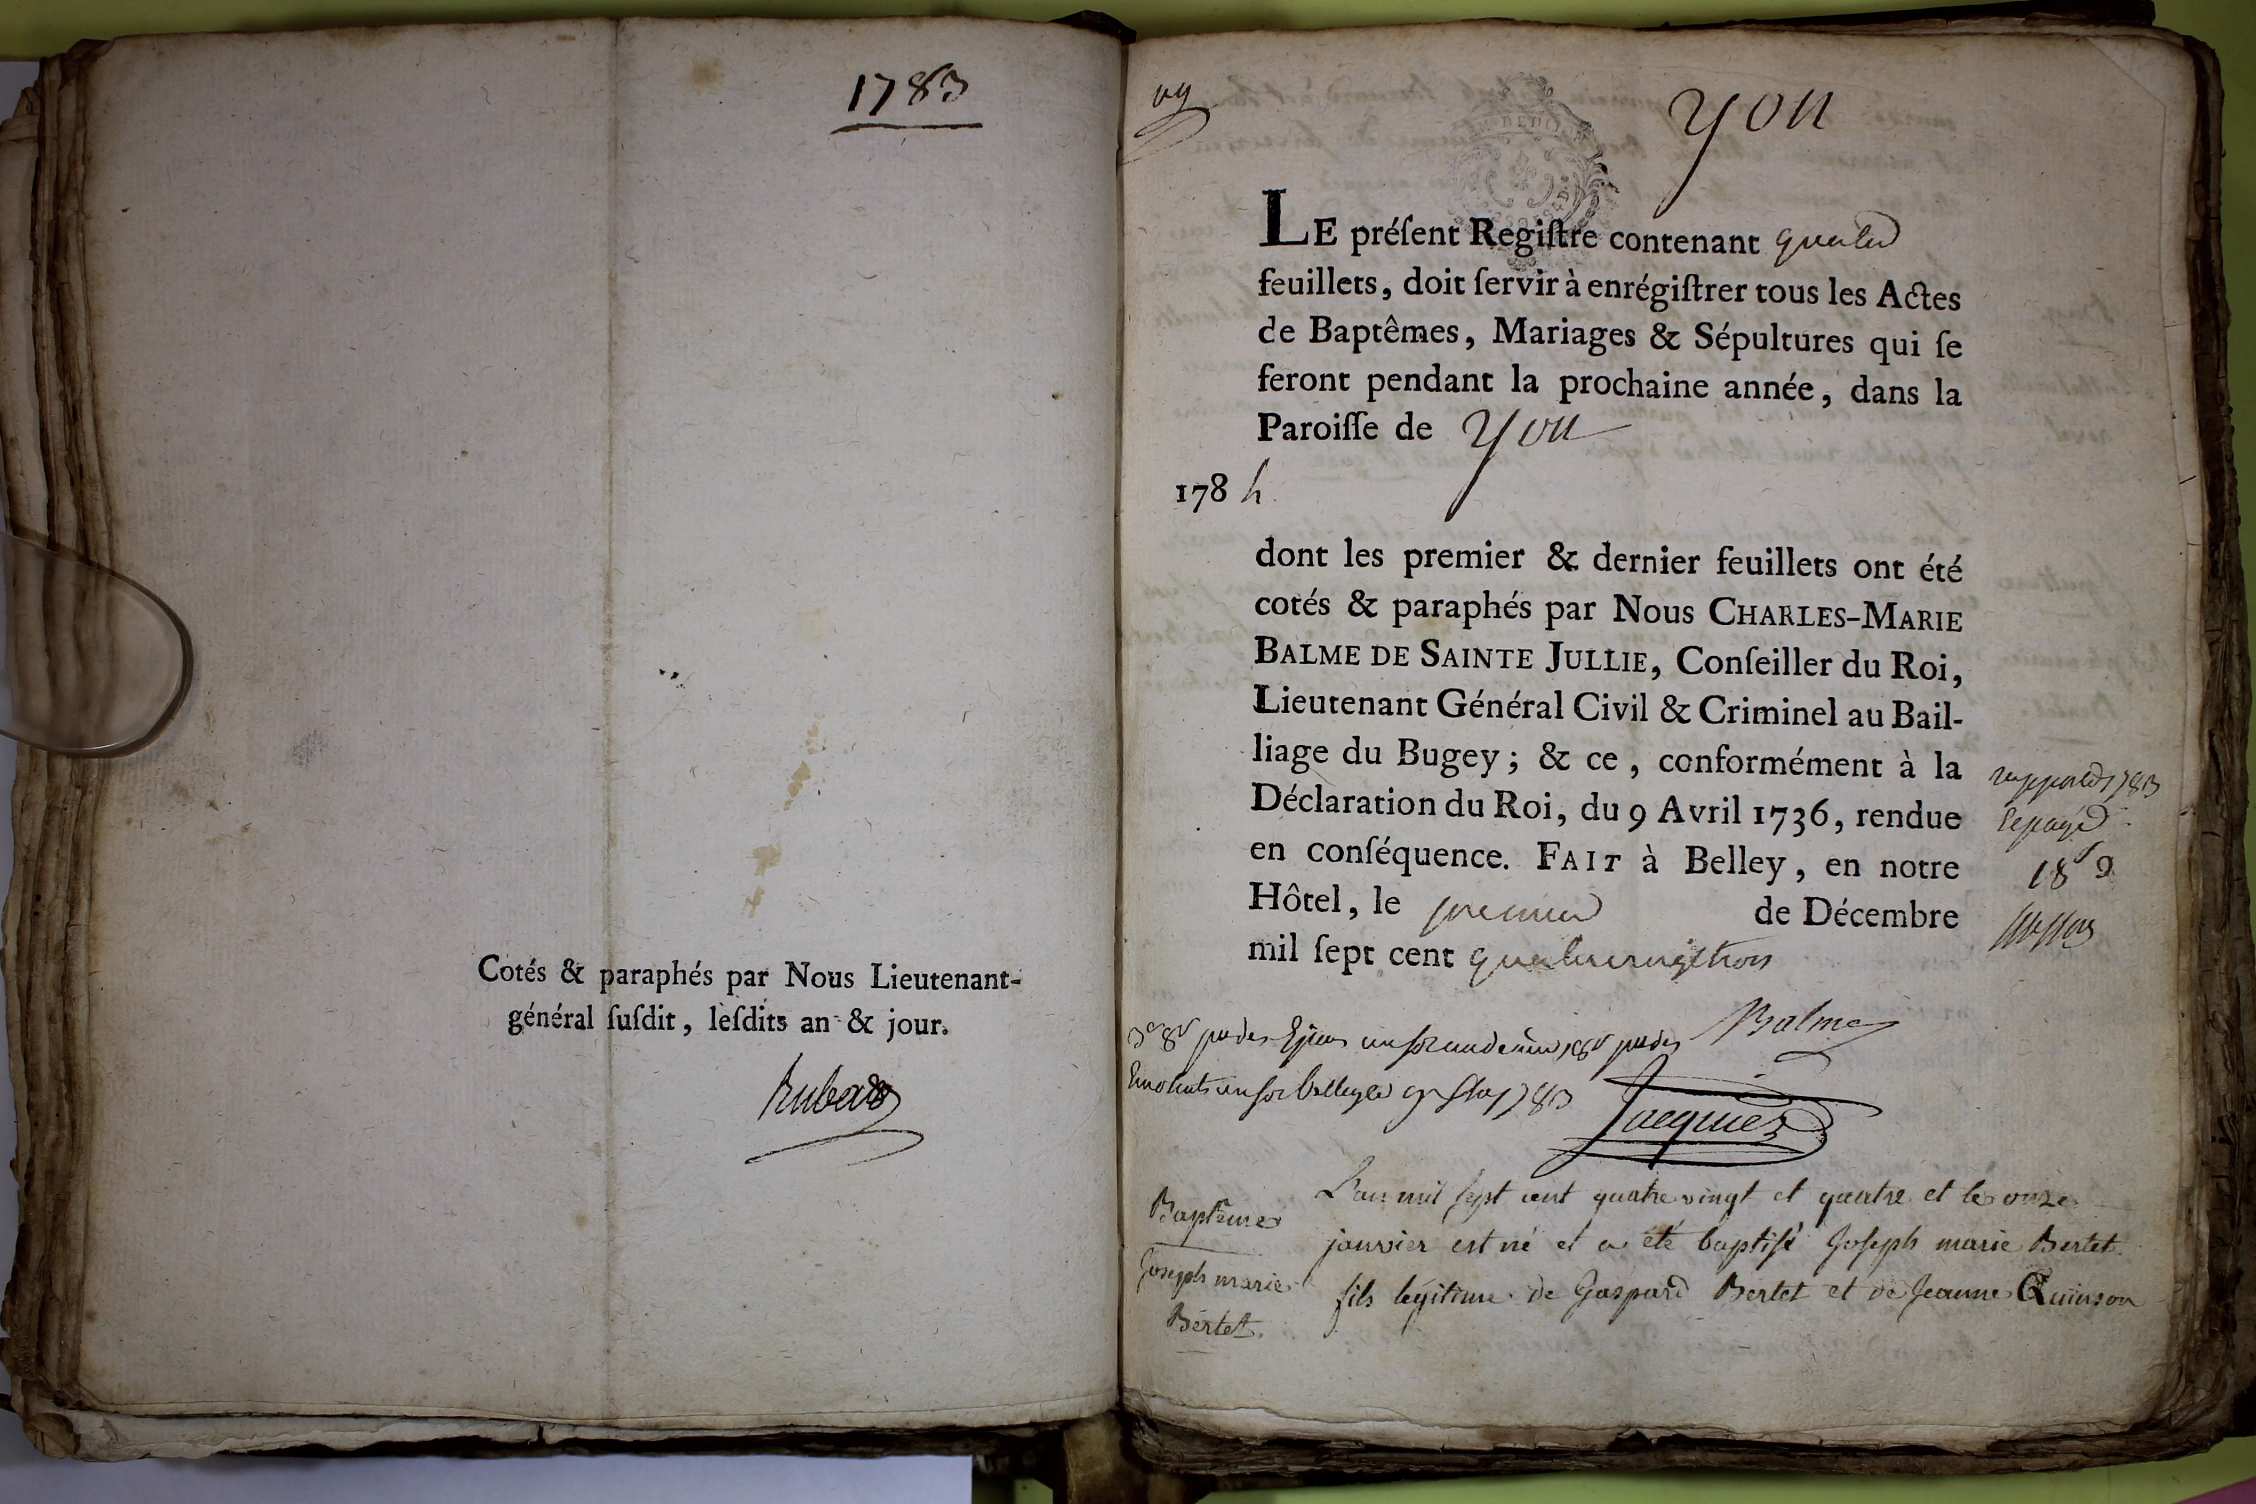 1783
Cotés & paraphés par Nous Lieutenant-
général ſuſdit, leſdits an & jour.
yon
LE préſent Regiſtre contenant quatre
feuillets, doit ſervir à enrégiſtrer tous les Actes
de Baptêmes, Mariages & Sépultures qui ſe
feront pendant la prochaine année, dans la
Paroiſſe de yon
1784
dont les premier & dernier feuillets ont été
cotés & paraphés par Nous CHARLES-MARIE
BALME DE SAINTE JULLIE, Conſeiller du Roi,
Lieutenant Général Civil & Criminel au Bail-
liage du Bugey; & ce, conformément à la
Déclaration du Roi, du 9 Avril 1736, rendue
en conſéquence. FAIT à Belley, en notre
Hôtel, le premier de Décembre
mil ſept cent quatrevingttrois
rapporté 1783
Balme
Jacquier
Baptême
Joseph marie
Bertet.
L'an mil sept cent quatre vingt et quatre et le onze
janvier est né et a été baptisé Joseph marie Bertet
fils légitime de Gaspard Bertet et de Jeanne Quinson